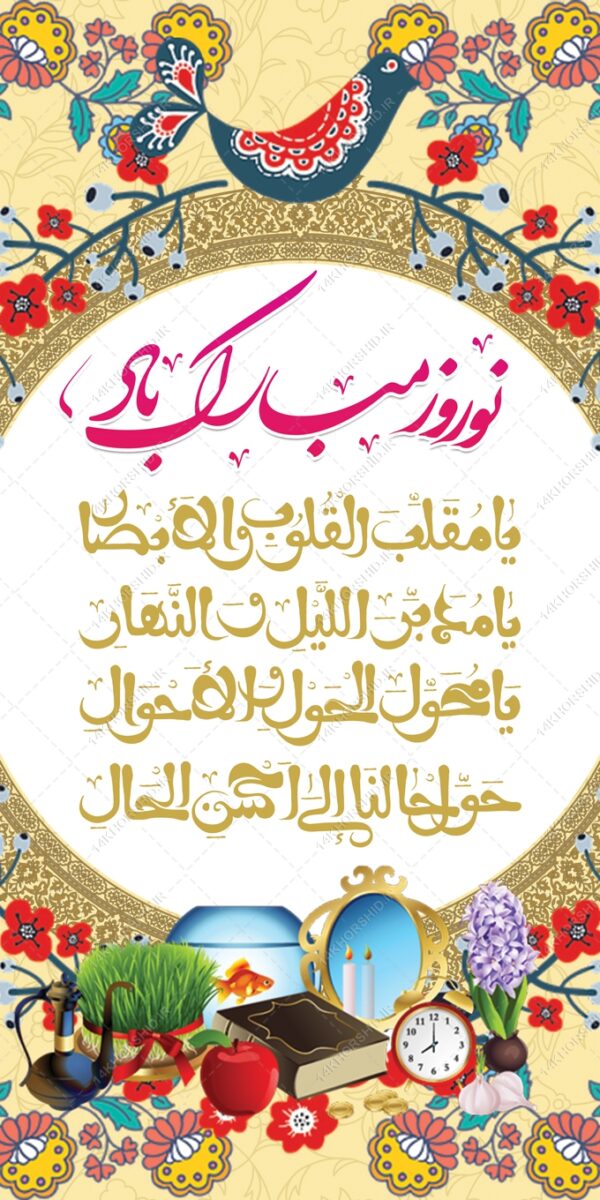 نوروز مبارک باد
یا مُقَلِّبَ القُلُوبِ وَالأَبْصارِ
یا مُدَبِّرَ اللَّیْلِ وَ النَّهارِ
یا مُحَوِّلَ الحَوْلِ وَالأَحْوالِ
حَوِّلْ حالَنا إِلی أَحْسَنِ الحالِ
12
1
2
3
4
5
6
7
8
9
10
11
14KHORSHID.IR